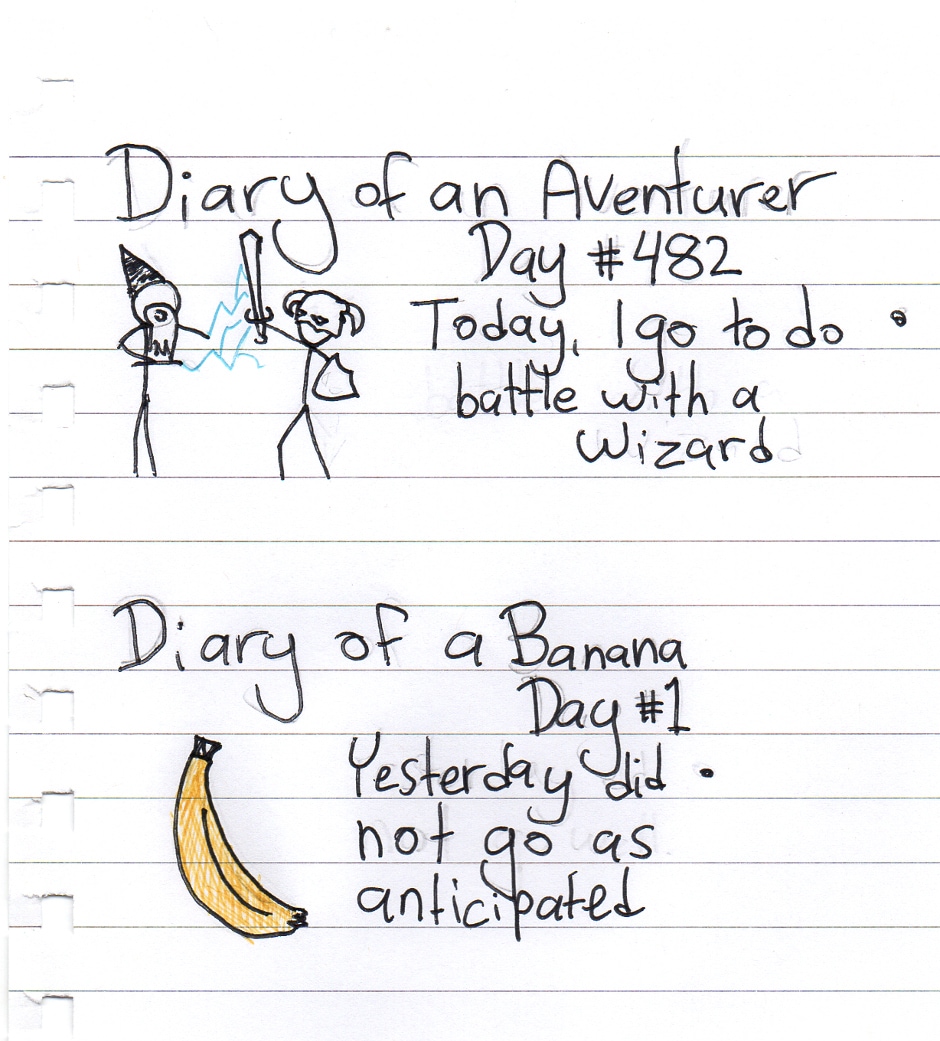 Diary of an Aventurer
Day #482
Today, I go to do
battle with a
Wizard
Diary of a Banana
Day #1
Yesterday did
not go as
anticipated